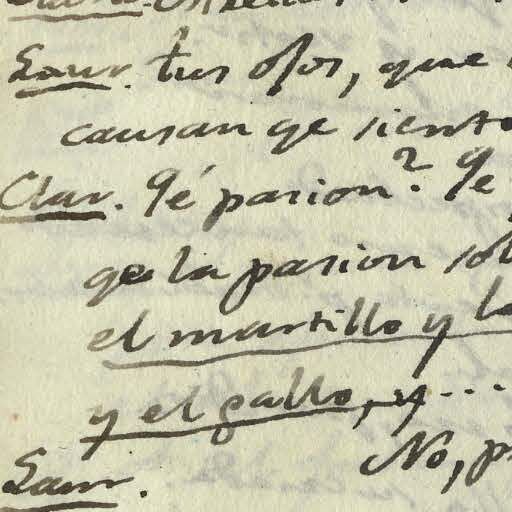 Laur. tus ojos, que
causan qe siento
Clar. Qé pasion? Qe
qe la pasion sol
el martillo y la
y el gallo, y ...
No, pr
Laur.